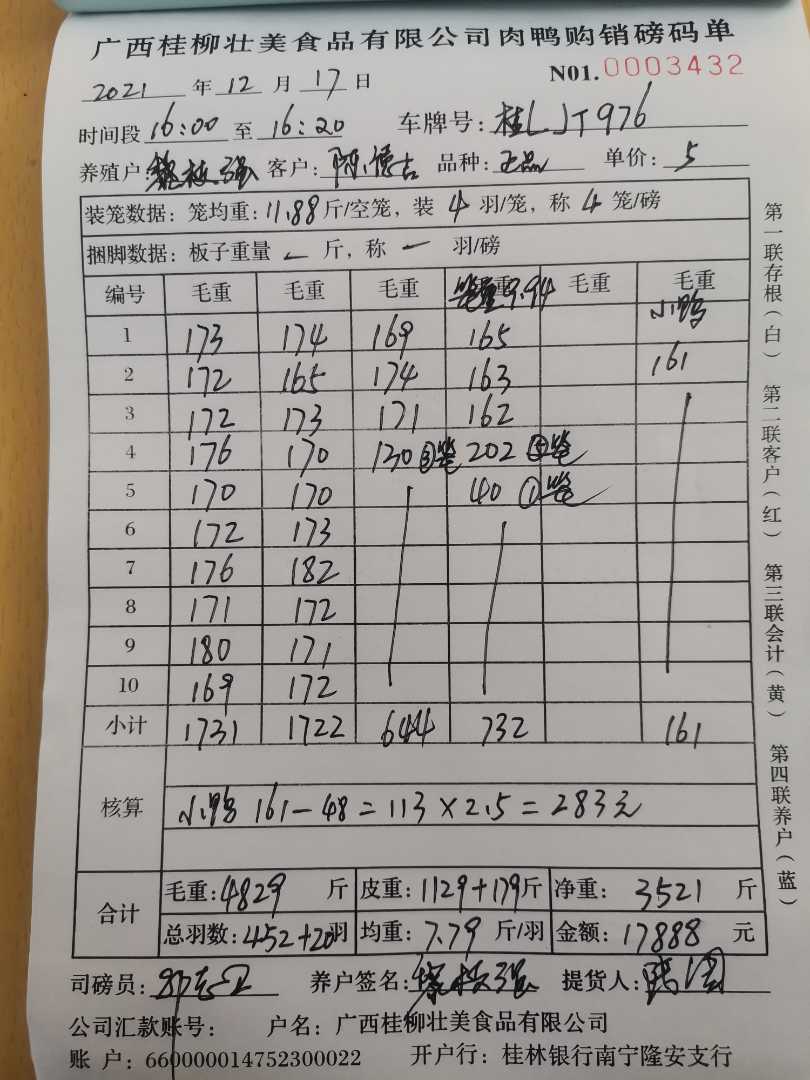 广西桂柳壮美食品有限公司肉鸭购销磅码单
2021 年 12 月 17 日 N01. 0003432
时间段 16:00 至 16:20 车牌号: 桂LJT976
养殖户: 强 客户: 陈德吉 品种: 正品 单价: 5
装笼数据: 笼均重: 11.88 斤/空笼, 装 4 羽/笼, 称 4 笼/磅
捆脚数据: 板子重量 - 斤, 称 - 羽/磅
编号 毛重 毛重 毛重 笼重9.94 毛重 毛重
小鸭
1 173 174 169 165
2 172 165 174 163 161
3 172 173 171 162
4 176 170 130 ③笼 202 ⑤笼
5 170 170 40 ①笼
6 172 173
7 176 182
8 171 172
9 180 171
10 169 172
小计 1731 1722 644 732 161
核算 小鸭 161-48=113×2.5=283元
合计 毛重: 4829 斤 皮重: 1129+179斤 净重: 3521 斤
总羽数: 452+20羽 均重: 7.79 斤/羽 金额: 17888 元
司磅员: 养户签名: 强 提货人:
公司汇款账号: 户名: 广西桂柳壮美食品有限公司
账 户: 660000014752300022 开户行: 桂林银行南宁隆安支行
第一联存根(白) 第二联客户(红) 第三联会计(黄) 第四联养户(蓝)